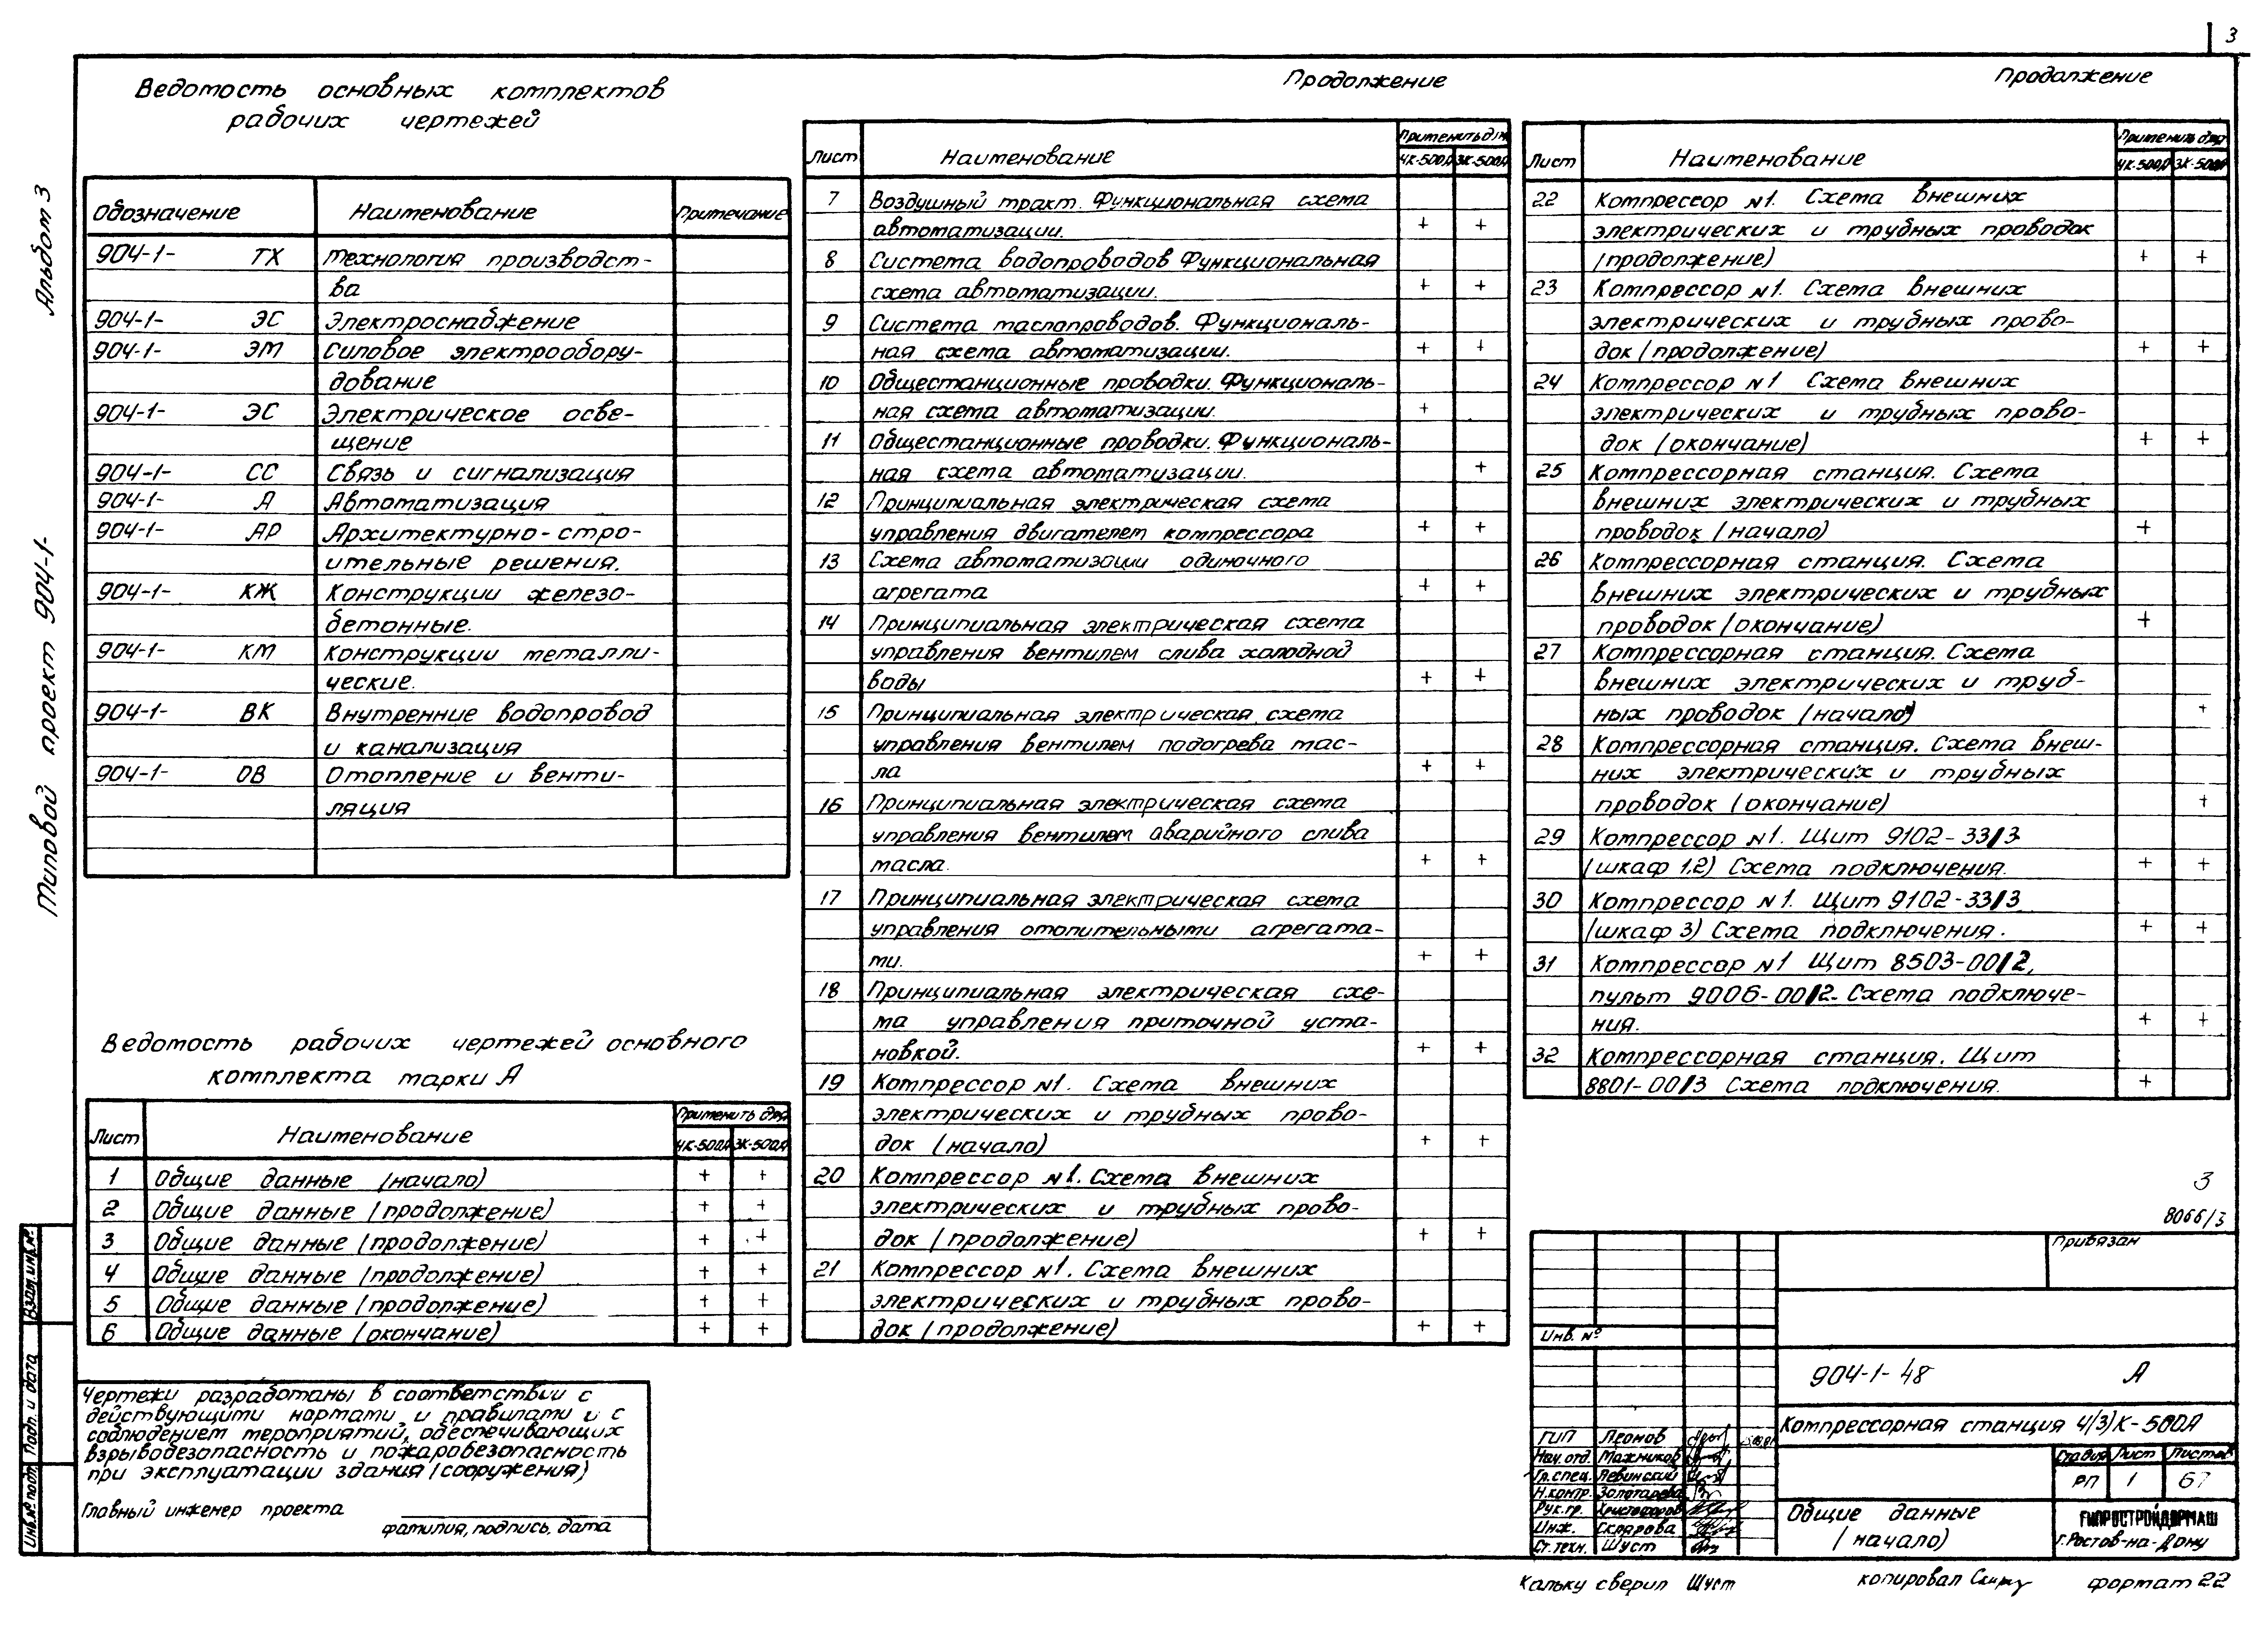 3
Альбом 3
Типовой проект 904-1-
Ведомость основных комплектов
рабочих чертежей
Обозначение Наименование Примечание
904-1- ТХ Технология производст-
ва
904-1- ЭС Электроснабжение
904-1- ЭМ Силовое электрообору-
дование
904-1- ЭС Электрическое осве-
щение
904-1- СС Связь и сигнализация
904-1- А Автоматизация
904-1- АР Архитектурно-стро-
ительные решения.
904-1- КЖ Конструкции железо-
бетонные.
904-1- КМ Конструкции металли-
ческие.
904-1- ВК Внутренние водопровод
и канализация
904-1- ОВ Отопление и венти-
ляция
Ведомость рабочих чертежей основного
комплекта марки А
Лист Наименование Применить для
4К-500А 3К-500А
1 Общие данные (начало) + +
2 Общие данные (продолжение) + +
3 Общие данные (продолжение) + +
4 Общие данные (продолжение) + +
5 Общие данные (продолжение) + +
6 Общие данные (окончание) + +
Чертежи разработаны в соответствии с
действующими нормами и правилами и с
соблюдением мероприятий, обеспечивающих
взрывобезопасность и пожаробезопасность
при эксплуатации здания (сооружения)
Главный инженер проекта
фамилия, подпись, дата
Продолжение
Лист Наименование Применить для
4К-500А 3К-500А
7 Воздушный тракт. Функциональная схема
автоматизации. + +
8 Система водопроводов Функциональная
схема автоматизации. + +
9 Система маслопроводов. Функциональ-
ная схема автоматизации. + +
10 Общестанционные проводки. Функциональ-
ная схема автоматизации. +
11 Общестанционные проводки. Функциональ-
ная схема автоматизации. +
12 Принципиальная электрическая схема
управления двигателем компрессора + +
13 Схема автоматизации одиночного
агрегата + +
14 Принципиальная электрическая схема
управления вентилем слива холодной
воды + +
15 Принципиальная электрическая схема
управления вентилем подогрева мас-
ла + +
16 Принципиальная электрическая схема
управления вентилем аварийного слива
масла. + +
17 Принципиальная электрическая схема
управления отопительными агрегата-
ми. + +
18 Принципиальная электрическая схе-
ма управления приточной уста-
новкой. + +
19 Компрессор №1. Схема внешних
электрических и трубных прово-
док (начало) + +
20 Компрессор №1. Схема внешних
электрических и трубных прово-
док (продолжение) + +
21 Компрессор №1. Схема внешних
электрических и трубных прово-
док (продолжение) + +
Продолжение
Лист Наименование Применить для
4К-500А 3К-500А
22 Компрессор №1. Схема внешних
электрических и трубных проводок
(продолжение) + +
23 Компрессор №1. Схема внешних
электрических и трубных прово-
док (продолжение) + +
24 Компрессор №1 Схема внешних
электрических и трубных прово-
док (окончание) + +
25 Компрессорная станция. Схема
внешних электрических и трубных
проводок (начало) +
26 Компрессорная станция. Схема
внешних электрических и трубных
проводок (окончание) +
27 Компрессорная станция. Схема
внешних электрических и труб-
ных проводок (начало) +
28 Компрессорная станция. Схема внеш-
них электрических и трубных
проводок (окончание) +
29 Компрессор №1. Щит 9102-33/3
(шкаф 1,2) Схема подключения. + +
30 Компрессор №1. Щит 9102-33/3
(шкаф 3) Схема подключения. + +
31 Компрессор №1 Щит 8503-00/2,
пульт 9006-00/2. Схема подключе-
ния. + +
32 Компрессорная станция. Щит
8801-00/3 Схема подключения. +
3
8066/3
Привязан
Инв. №
904-1-48 А
Компрессорная станция 4(3)К-500А
ГИП Леонов
Нач. отд. Мажников
Гл. спец. Левинский
Н. контр. Золотарева
Рук. гр. Христофоров
Инж. Склярова
Ст. техн. Шуст
Стадия Лист Листов
РП 1 67
Общие данные
(начало)
ГИПРОСТРОЙДОРМАШ
г. Ростов-на-Дону
Взам. инв. №
Подп. и дата
Инв. № подл.
Кальку сверил Шуст копировал формат 22